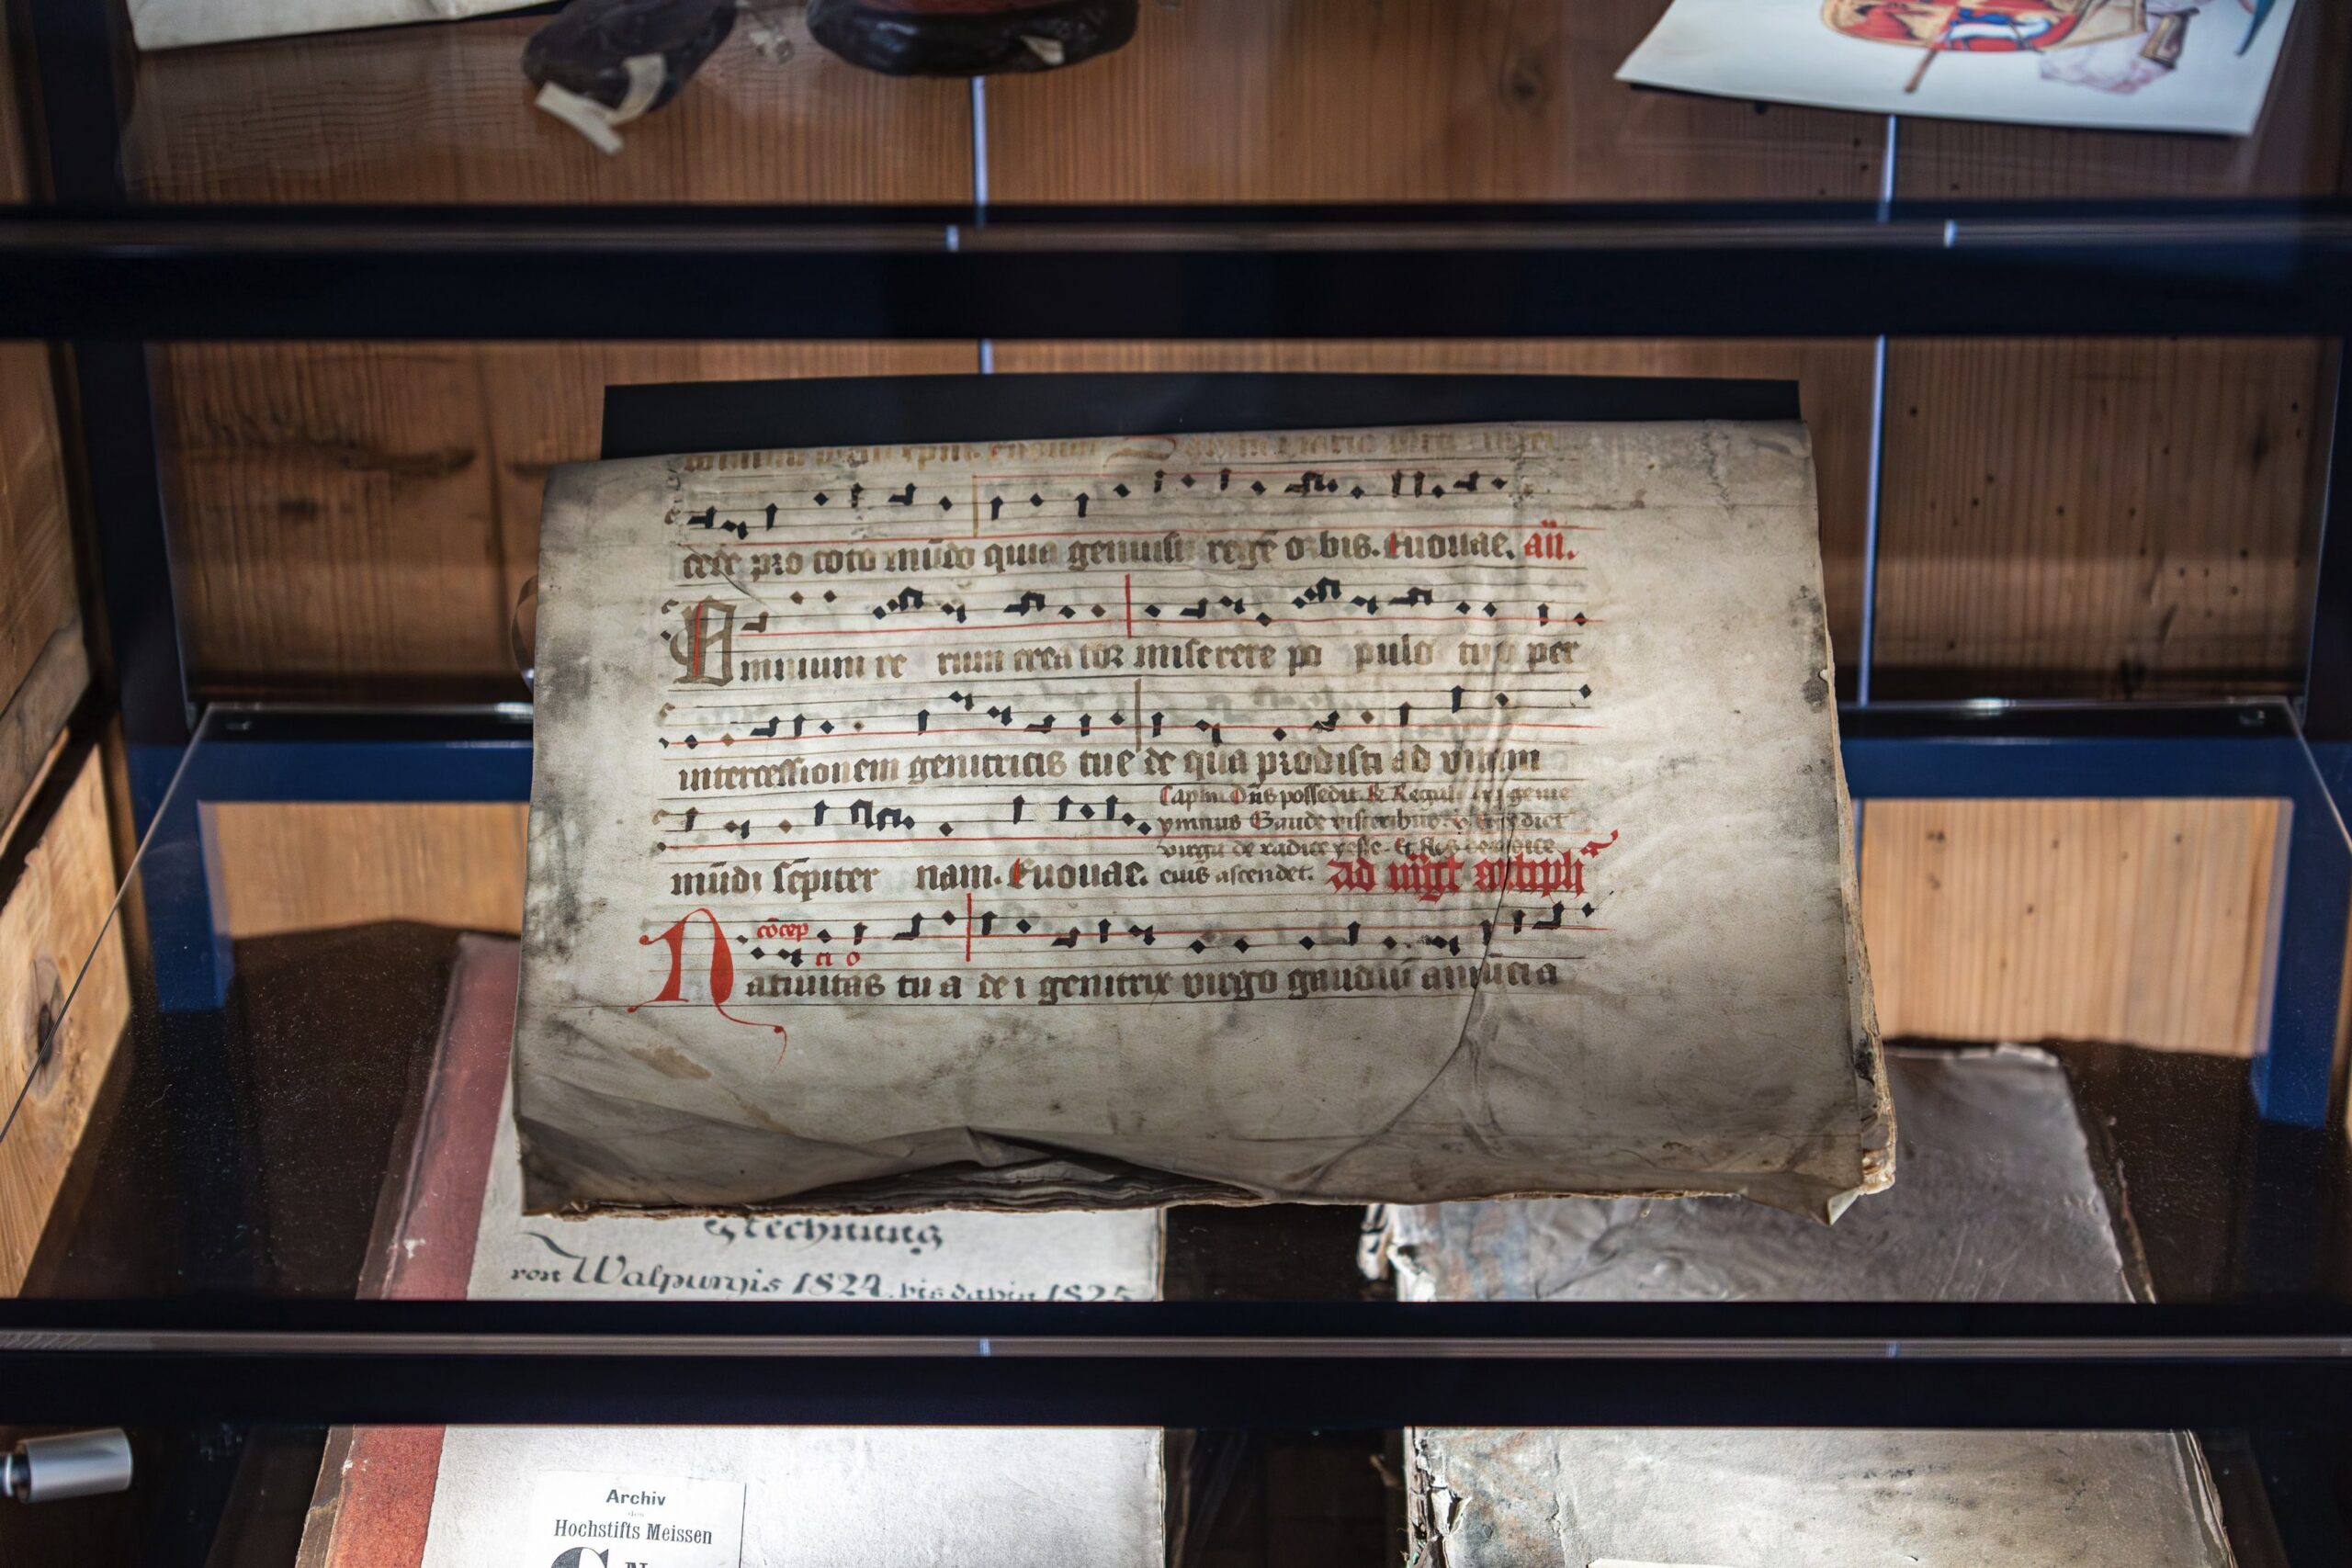 cede pro toto mūdo quia genuisti regē orbis. Euouae. añ.
Omnium re rum crea tor miserere po pulo tuo per
intercessionem genitricis tue de qua prodisti ad vitam
Capitm Dñs possedit. R. Regali ex genie
ymnus Gaude visceribus
virga de radice yesse. Et flos de radice
mūdi sēpiter nam. Euouae. eius ascendet. Ad mgt antiph
cōcep
ti o
Natiuitas tu a de i genitrix virgo gaudiū annūcia
Rechnung
von Walpurgis 1824. bis dahin 1825
Archiv
des
Hochstifts Meissen